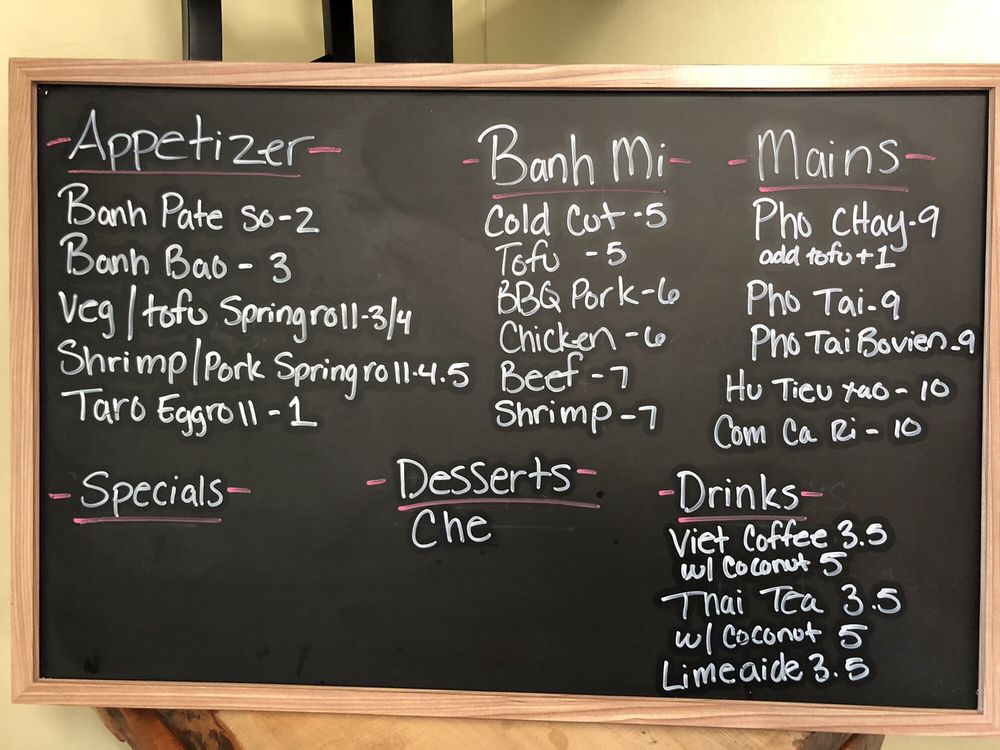 - Appetizer -
Banh Pate so - 2
Banh Bao - 3
Veg/tofu Springroll - 3/4
Shrimp/Pork Springroll - 4.5
Taro Eggroll - 1
- Banh Mi -
Cold Cut - 5
Tofu - 5
BBQ Pork - 6
Chicken - 6
Beef - 7
Shrimp - 7
- Mains -
Pho CHay - 9
add tofu + 1
Pho Tai - 9
Pho Tai Bovien - 9
Hu Tieu xao - 10
Com Ca Ri - 10
- Specials -
- Desserts -
Che
- Drinks -
Viet Coffee 3.5
w/ Coconut 5
Thai Tea 3.5
w/ Coconut 5
Limeaide 3.5